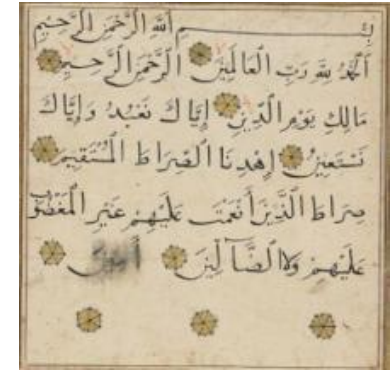 بسم الله الرحمن الرحيم
الحمد لله رب العالمين الرحمن الرحيم
مالك يوم الدين إياك نعبد وإياك
نستعين إهدنا الصراط المستقيم
صراط الذين أنعمت عليهم غير المغضوب
عليهم ولا الضآلين أمين